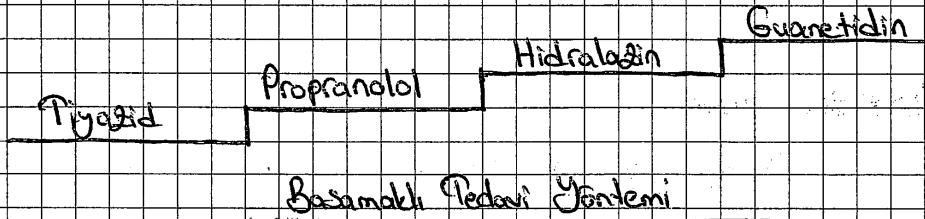 Guanetidin
Hidralazin
Propranolol
Tiyazid
Basamaklı Tedavi Yöntemi